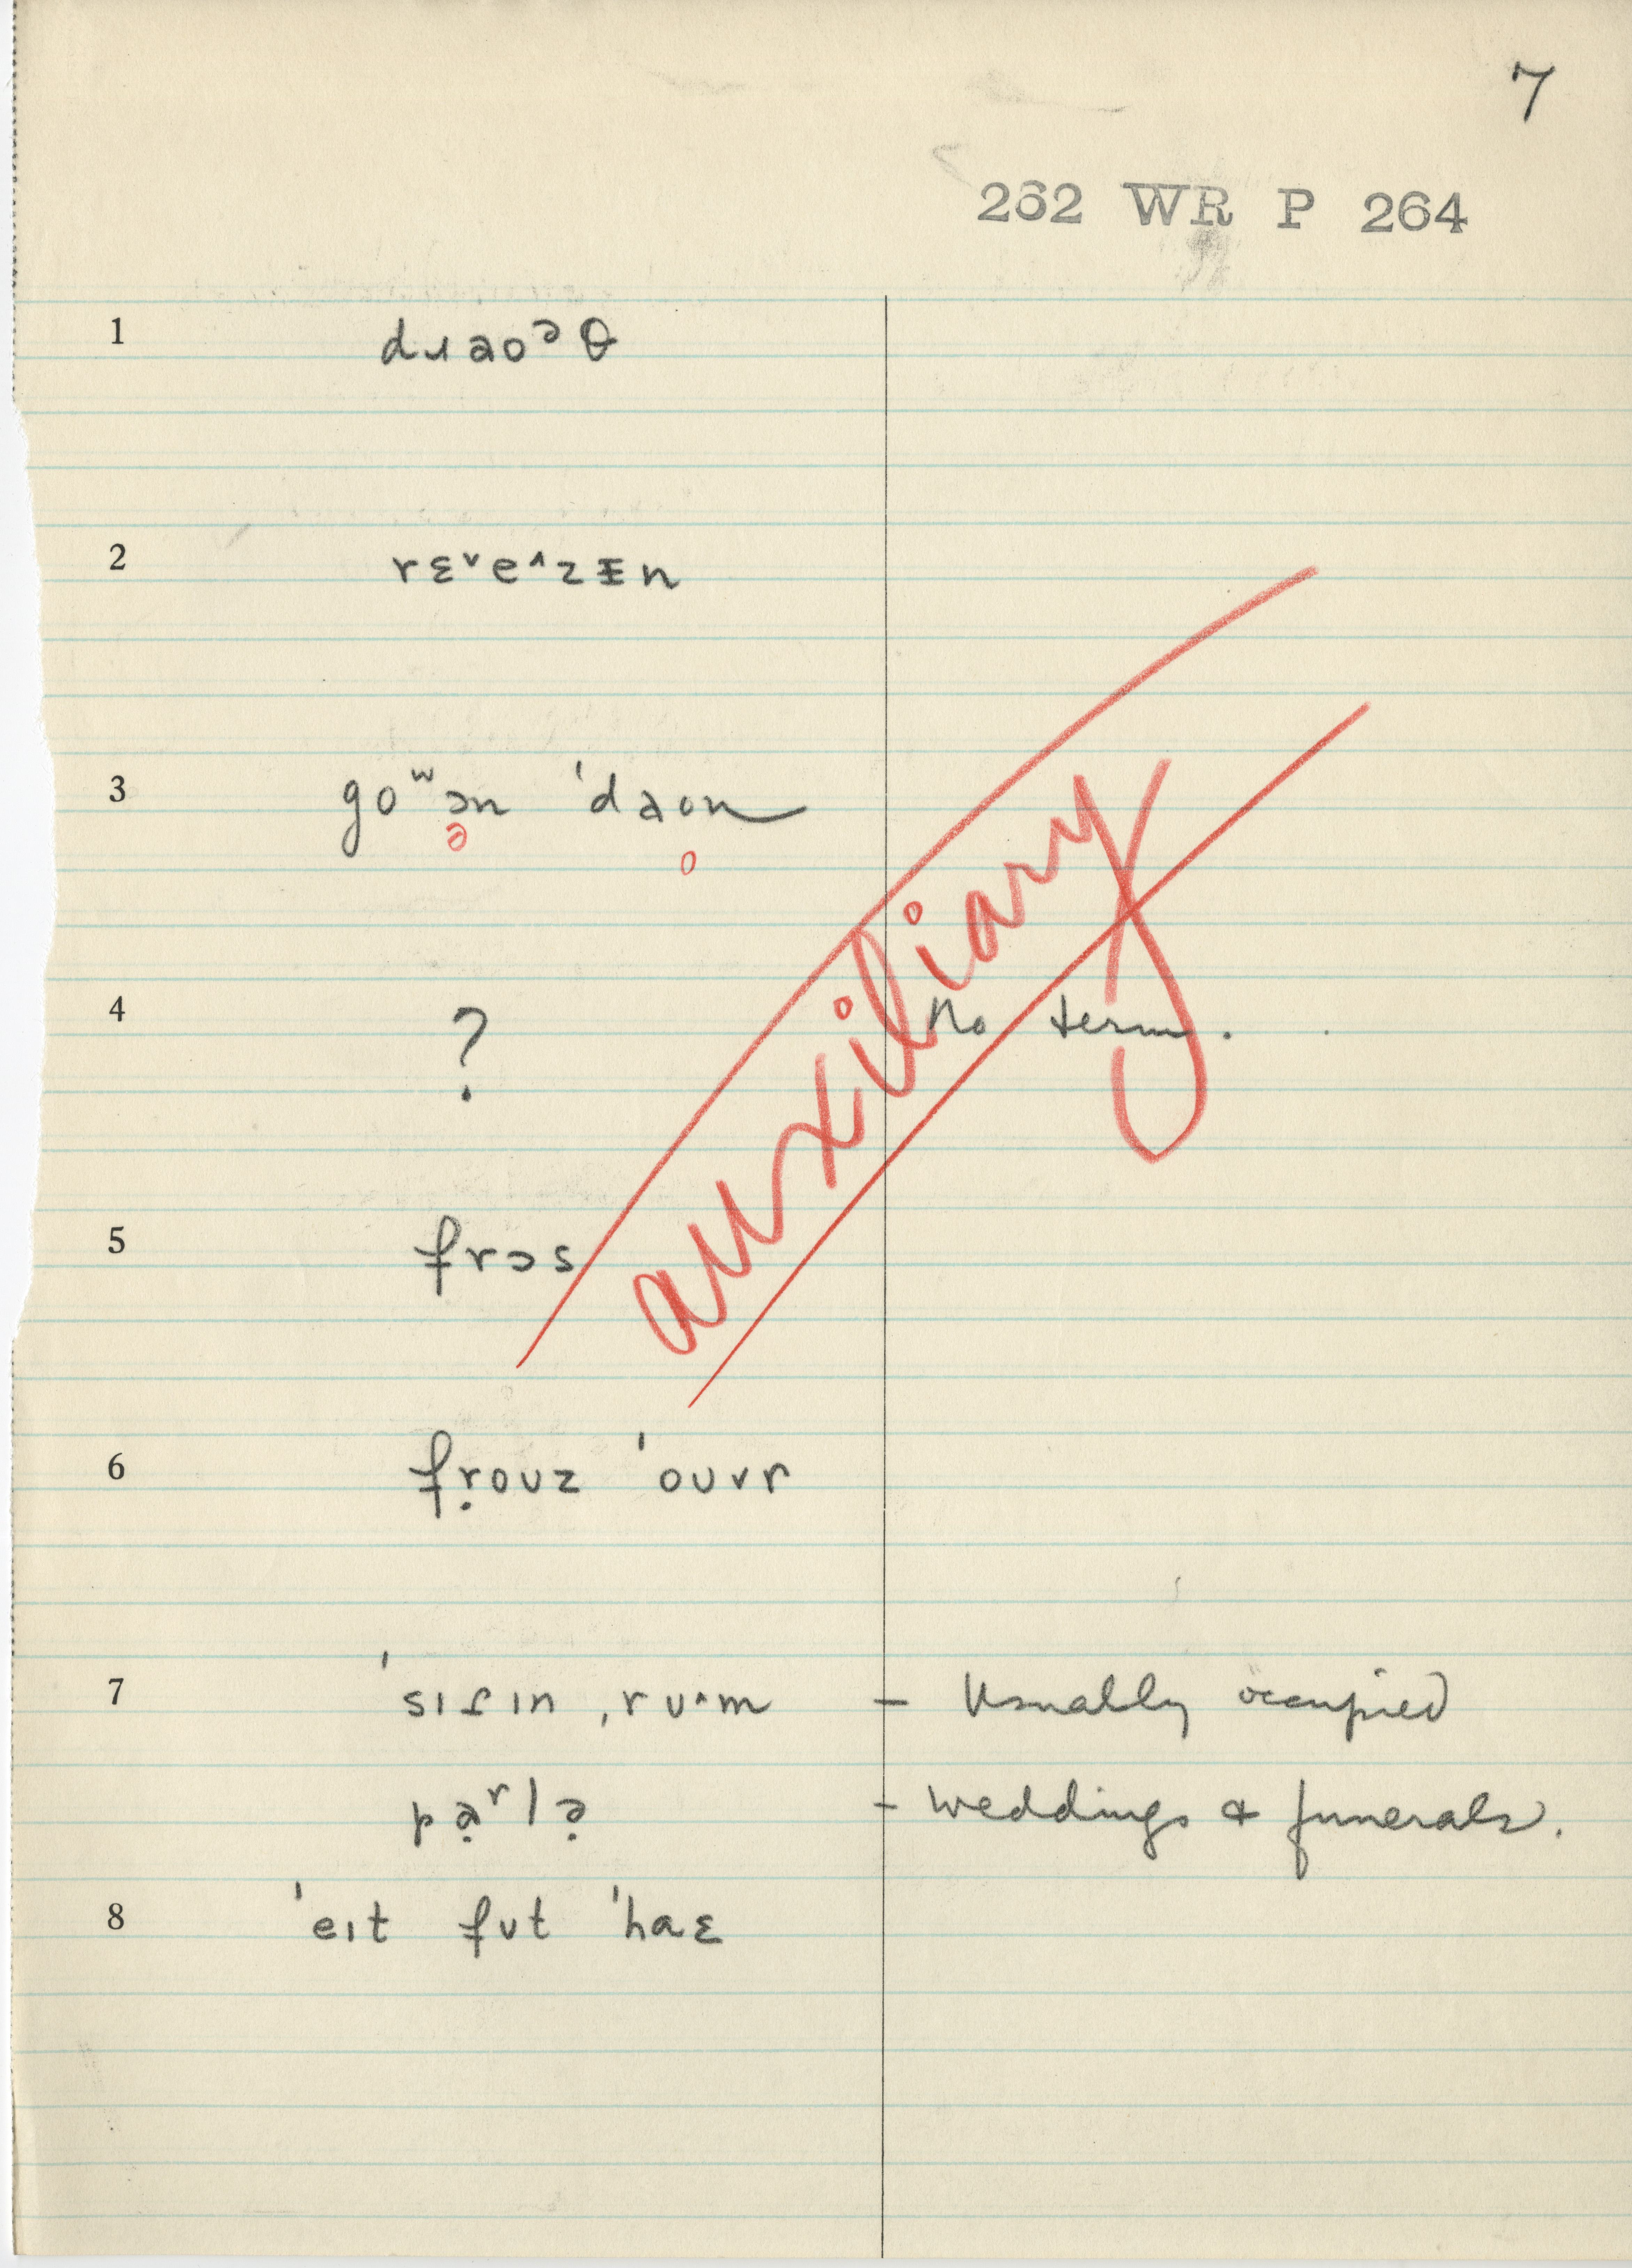 7
262 WR P 264
1 dɹaoᵊθ
2 rɛᵛeᶺzɪn
3 goʷən ˈdaon
ə o
auxiliary
4 ? No term.
5 frɔs
6 fṛouz ˈouvr
7 ˈsɪtɪn ˌruᶺm – Usually occupied
pạʳlə̣ – weddings & funerals.
8 ˈeɪt fut ˈhaɛ